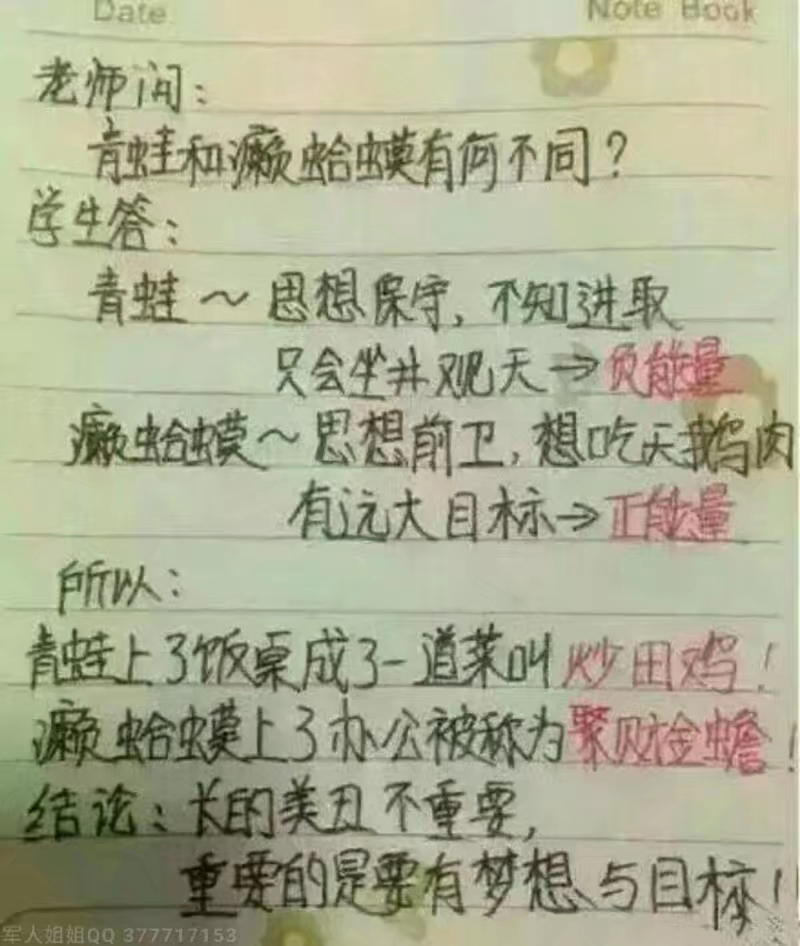 Date Note Book
老师问：
青蛙和癞蛤蟆有何不同？
学生答：
青蛙～思想保守，不知进取
只会坐井观天→负能量
癞蛤蟆～思想前卫，想吃天鹅肉
有远大目标→正能量
所以：
青蛙上了饭桌成了一道菜叫炒田鸡！
癞蛤蟆上了办公被称为聚财金蟾！
结论：长的美丑不重要，
重要的是要有梦想与目标！！
军人姐姐QQ 377717153